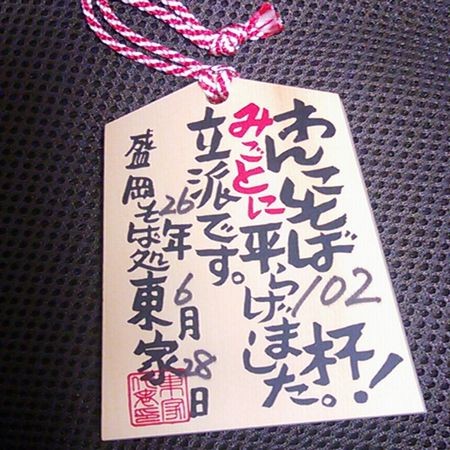 わんこそば102杯!
みごとに平らげました。
立派です。
26年6月28日
盛岡そば処東家